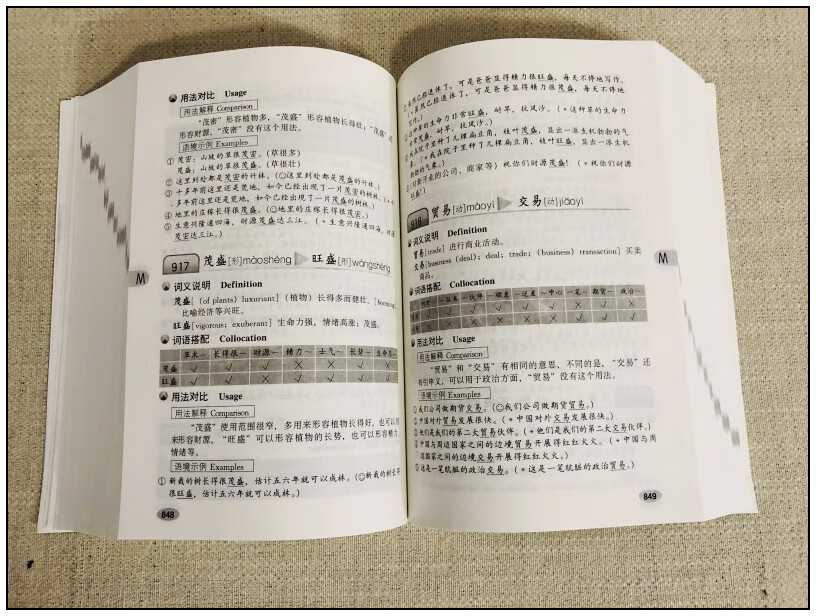 用法对比 Usage
用法解释 Comparison
"茂密"形容植物多，"茂盛"形容植物长得壮；"茂盛"可
形容财源，"茂密"没有这个用法。
语境示例 Examples
① 茂密：山坡的草很茂密。（草很多）
茂盛：山坡的草很茂盛。（草很壮）
② 这里到处都是茂密的竹林。（☺这里到处都是茂盛的竹林。）
③ 十多年前这里还是荒地，如今已经出现了一片茂密的树林。（*十
多年前这里还是荒地，如今已经出现了一片茂盛的树林。）
④ 地里的庄稼长得很茂盛。（☺地里的庄稼长得很茂密。）
⑤ 生意兴隆通四海，财源茂盛达三江。（*生意兴隆通四海，财源
茂密达三江。）
917 茂盛[形]màoshèng 旺盛[形]wàngshèng
词义说明 Definition
茂盛[（of plants）luxuriant]（植物）长得多而健壮。[booming]
比喻经济等兴旺。
旺盛[vigorous；exuberant] 生命力强，情绪高涨；茂盛。
词语搭配 Collocation
草木～ 长得很～ 财源～ 精力～ 士气～ 长势～ 生命力～
茂盛 √ √ √ × × √ ×
旺盛 √ √ × √ √ √ √
用法对比 Usage
用法解释 Comparison
"茂盛"使用范围很窄，多用来形容植物长得好，也可以用
来形容财源，"旺盛"可以形容植物的长势，也可以形容精力、
情绪等。
语境示例 Examples
① 新栽的树长得很茂盛，估计五六年就可以成林。（☺新栽的树长得
很旺盛，估计五六年就可以成林。）
848
M
可是爸爸显得精力很旺盛，每天不停地写作。
可是爸爸显得精力很茂盛，每天不停地
写作。）
这种草的生命力非常旺盛，耐旱，抗风沙。（*这种草的生命力
非常茂盛，耐旱，抗风沙。）
我在院子里种了几棵扁豆角，枝叶茂盛，显出一派生机勃勃的气
象。（*我在院子里种了几棵扁豆角，枝叶旺盛，显出一派生机
勃勃的气象。）
（对新开业的公司、商家等）祝你们财源茂盛！（*祝你们财源
旺盛！）
918 贸易[动]màoyì 交易[动]jiāoyì
词义说明 Definition
贸易[trade] 进行商业活动。
交易[business（deal）；deal；trade；（business）transaction] 买卖
商品。
词语搭配 Collocation
～伙伴 ～顺差 ～逆差 ～中心 一笔～ 期货～ 政治～
用法对比 Usage
用法解释 Comparison
"贸易"和"交易"有相同的意思，不同的是，"交易"还
有引申义，可以用于政治方面，"贸易"没有这个用法。
语境示例 Examples
① 我们公司做期货交易。（☺我们公司做期货贸易。）
② 中国对外贸易发展很快。（*中国对外交易发展很快。）
③ 他们是我们的第二大贸易伙伴。（*他们是我们的第二大交易伙伴。）
④ 中国与周边国家之间的边境贸易开展得红红火火。（*中国与周
边国家之间的边境交易开展得红红火火。）
⑤ 这是一笔肮脏的政治交易。（*这是一笔肮脏的政治贸易。）
849
M